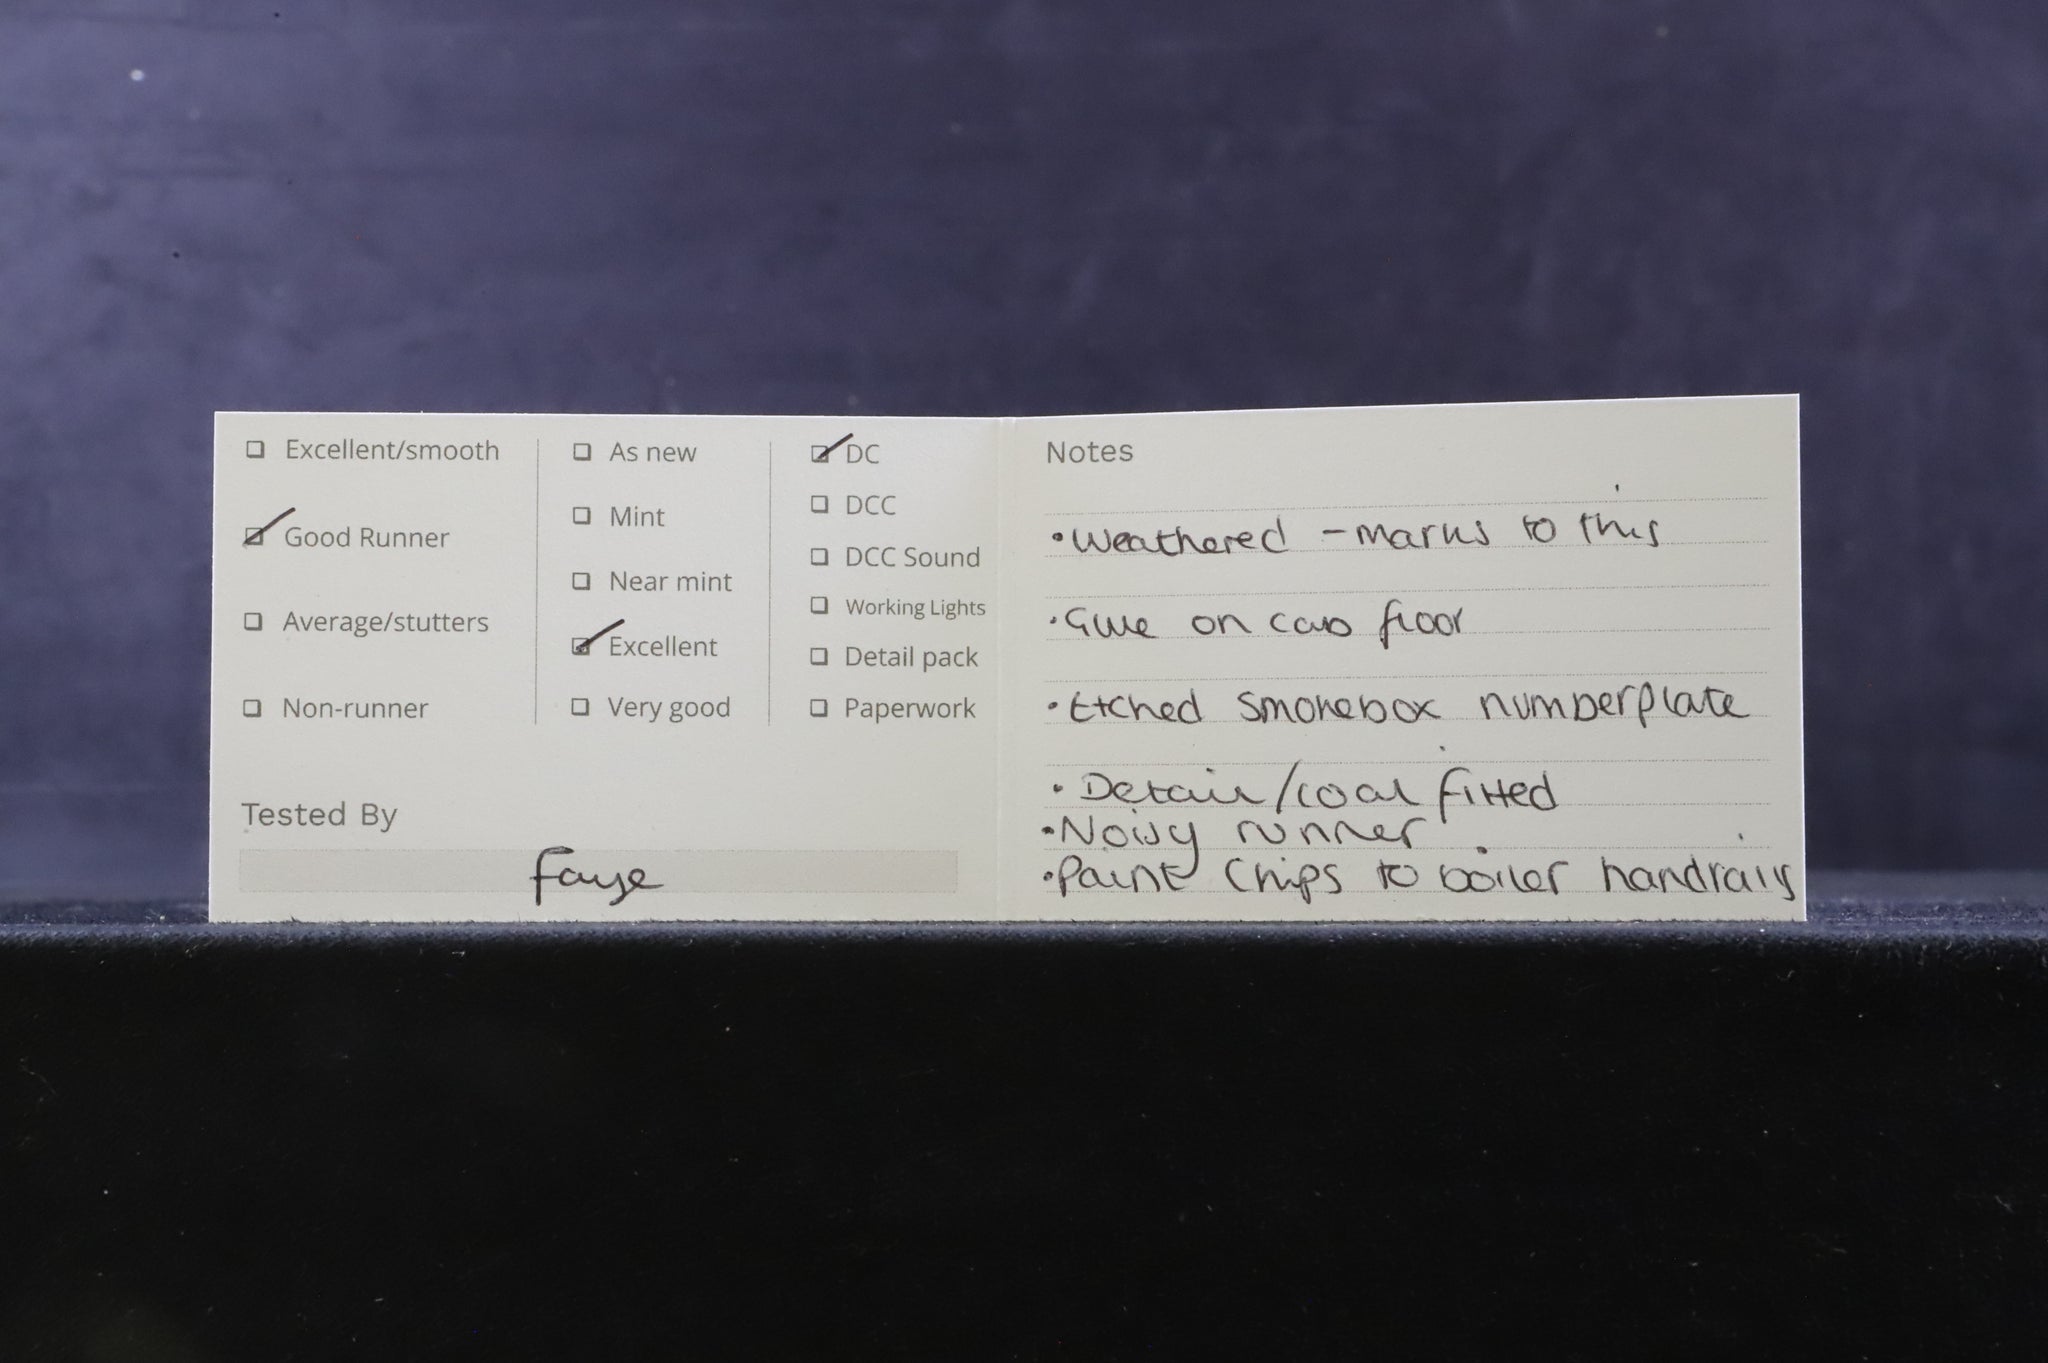 Excellent/smooth
Good Runner
Average/stutters
Non-runner
As new
Mint
Near mint
Excellent
Very good
DC
DCC
DCC Sound
Working Lights
Detail pack
Paperwork
Tested By
Faye
Notes
•Weathered - marks to this
•Glue on cab floor
•Etched smokebox numberplate
•Detail/coal fitted
•Noisy runner
•Paint chips to boiler handrails